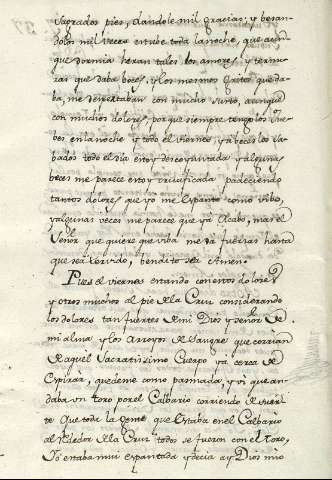 sagrados pies, dandole mil gracias, y besan
dolos mil veces estube toda la noche, que aun
que dormia heran tales los amores y ternu
ras que daba boces, y los mesmos gritos que da
ba, me despertaban con mucho susto, aunque
con muchos dolores, porque siempre tengo los jue
bes en la noche y todo el viernes y a veces los sa
bados todo el dia estoy descoyuntada y algunas
beces me parece estoy crusificada padeciendo
tantos dolores que yo me espanto como vibo,
y algunas veces me parece que ya Acabo, mas el
Señor que quiere que viba me da fuersas hasta
que sea servido, bendito sea Amen.
Pues el viernes estando con estos dolores
y otros muchos al pie de la Cruz considerando
los dolores tan fuertes de mi Dios y señor de
mi alma y los Arroyos de Sangre que corrian
de aquel Sacratissimo Cuerpo ya cerca de
Espirar, quedeme como pasmada, y vi que an
daba un toro por el Calbario corriendo de suer
te Que toda la gente que estaba en el Calbario
al rededor de la Cruz todos se fueron con el toro,
Yo estaba mui espantada y decia ay Dios mio